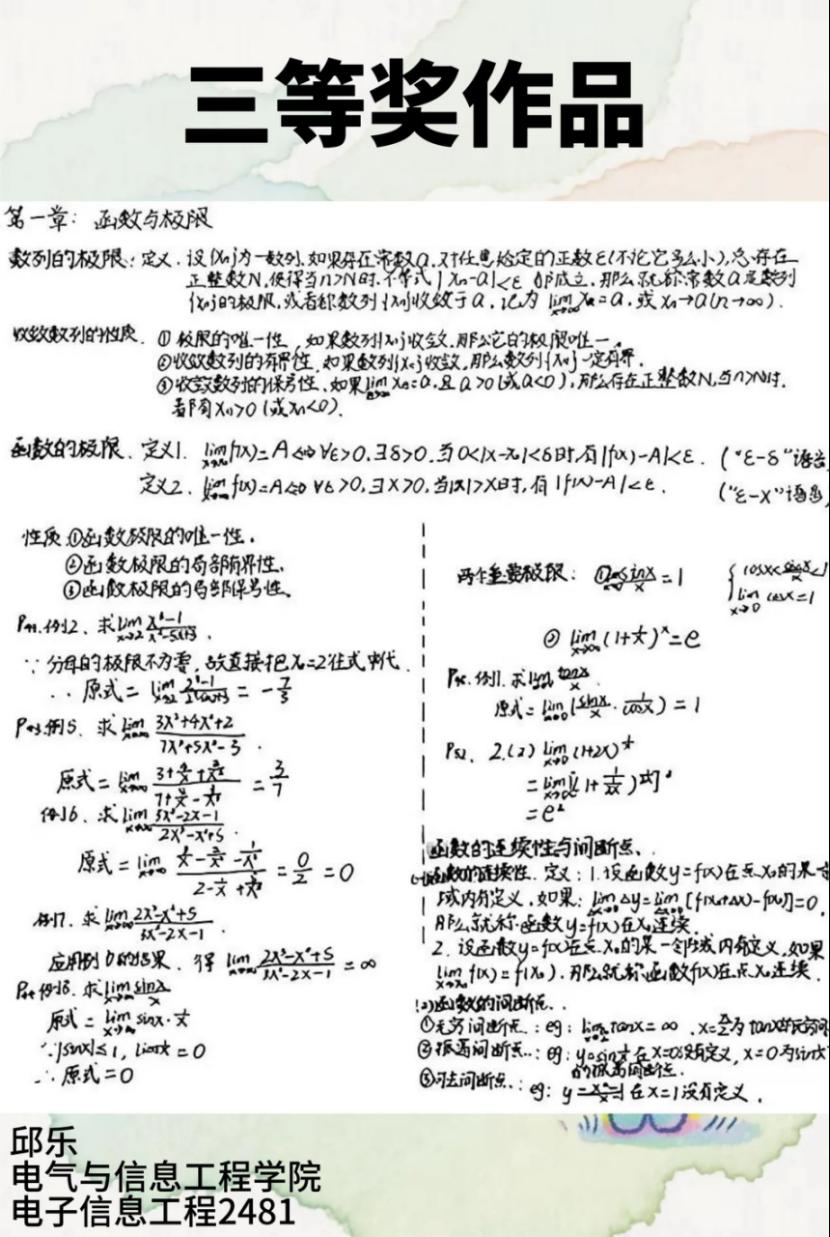 三等奖作品
第一章：函数与极限
数列的极限：定义．设{xₙ}为一数列．如果存在常数a．对任意给定的正数ε(不论它多么小)，总存在
正整数N，使得当n>N时．不等式|xₙ-a|<ε 都成立．那么就称常数a是数列
{xₙ}的极限，或者称数列{xₙ}收敛于a，记为 lim xₙ=a，或xₙ→a(n→∞)．
收敛数列的性质．①极限的唯一性，如果数列{xₙ}收敛，那么它的极限唯一．
②收敛数列的有界性，如果数列{xₙ}收敛，那么数列{xₙ}一定有界．
③收敛数列的保号性．如果lim xₙ=a，且a>0(或a<0)，那么存在正整数N，当n>N时．
都有xₙ>0(或xₙ<0)．
函数的极限．定义1．lim f(x)=A⇔∀ε>0，∃δ>0．当0<|x-x₀|<δ时，有|f(x)-A|<ε．("ε-δ"语言
定义2．lim f(x)=A⇔∀ε>0，∃X>0，当|x|>X时，有|f(x)-A|<ε．("ε-X"语言
性质①函数极限的唯一性．
②函数极限的局部有界性．
③函数极限的局部保号性．
例2、求lim
∵分母的极限不为零，故直接把x₀=2往式中代．
∴原式= = -7/3
例5．求lim (3x³+4x²+2)/(7x³+5x²-3)．
原式= = 3/7
例6．求lim (3x²-2x-1)/(2x³-x²+5)．
原式= = 0/2 = 0
例7．求lim (2x³-x²+5)/(3x²-2x-1)．
应用例6的结果．得 lim (2x³-x²+5)/(3x²-2x-1) = ∞
例8．求lim sinx/x
原式=lim sinx·1/x
∵|sinx|≤1，lim 1/x=0
∴原式=0
两个重要极限：① lim sinx/x=1 { cosx<sinx/x<1
lim cosx=1
x→0
② lim (1+1/x)ˣ=e
x→∞
例1．求lim tanx/x．
原式=lim(sinx/x·1/cosx)=1
P52．2.(2) lim (1+2x)^(1/x)
=e²
函数的连续性与间断点．
函数的连续性．定义：1．设函数y=f(x)在点x₀的某一邻
域内有定义，如果：lim Δy=lim [f(x₀+Δx)-f(x₀)]=0，
那么就称函数y=f(x)在x₀连续．
2．设函数y=f(x)在点x₀的某一邻域内有定义，如果
lim f(x)=f(x₀)．那么就称函数f(x)在点x₀连续．
(2)函数的间断点．
①无穷间断点．：eg：lim tanx=∞．x=π/2为tanx的无穷间
②振荡间断点．：eg：y=sin1/x在x=0没有定义，x=0为sin1/x
的振荡间断点．
③可去间断点．：eg： 在x=1没有定义．
邱乐
电气与信息工程学院
电子信息工程2481